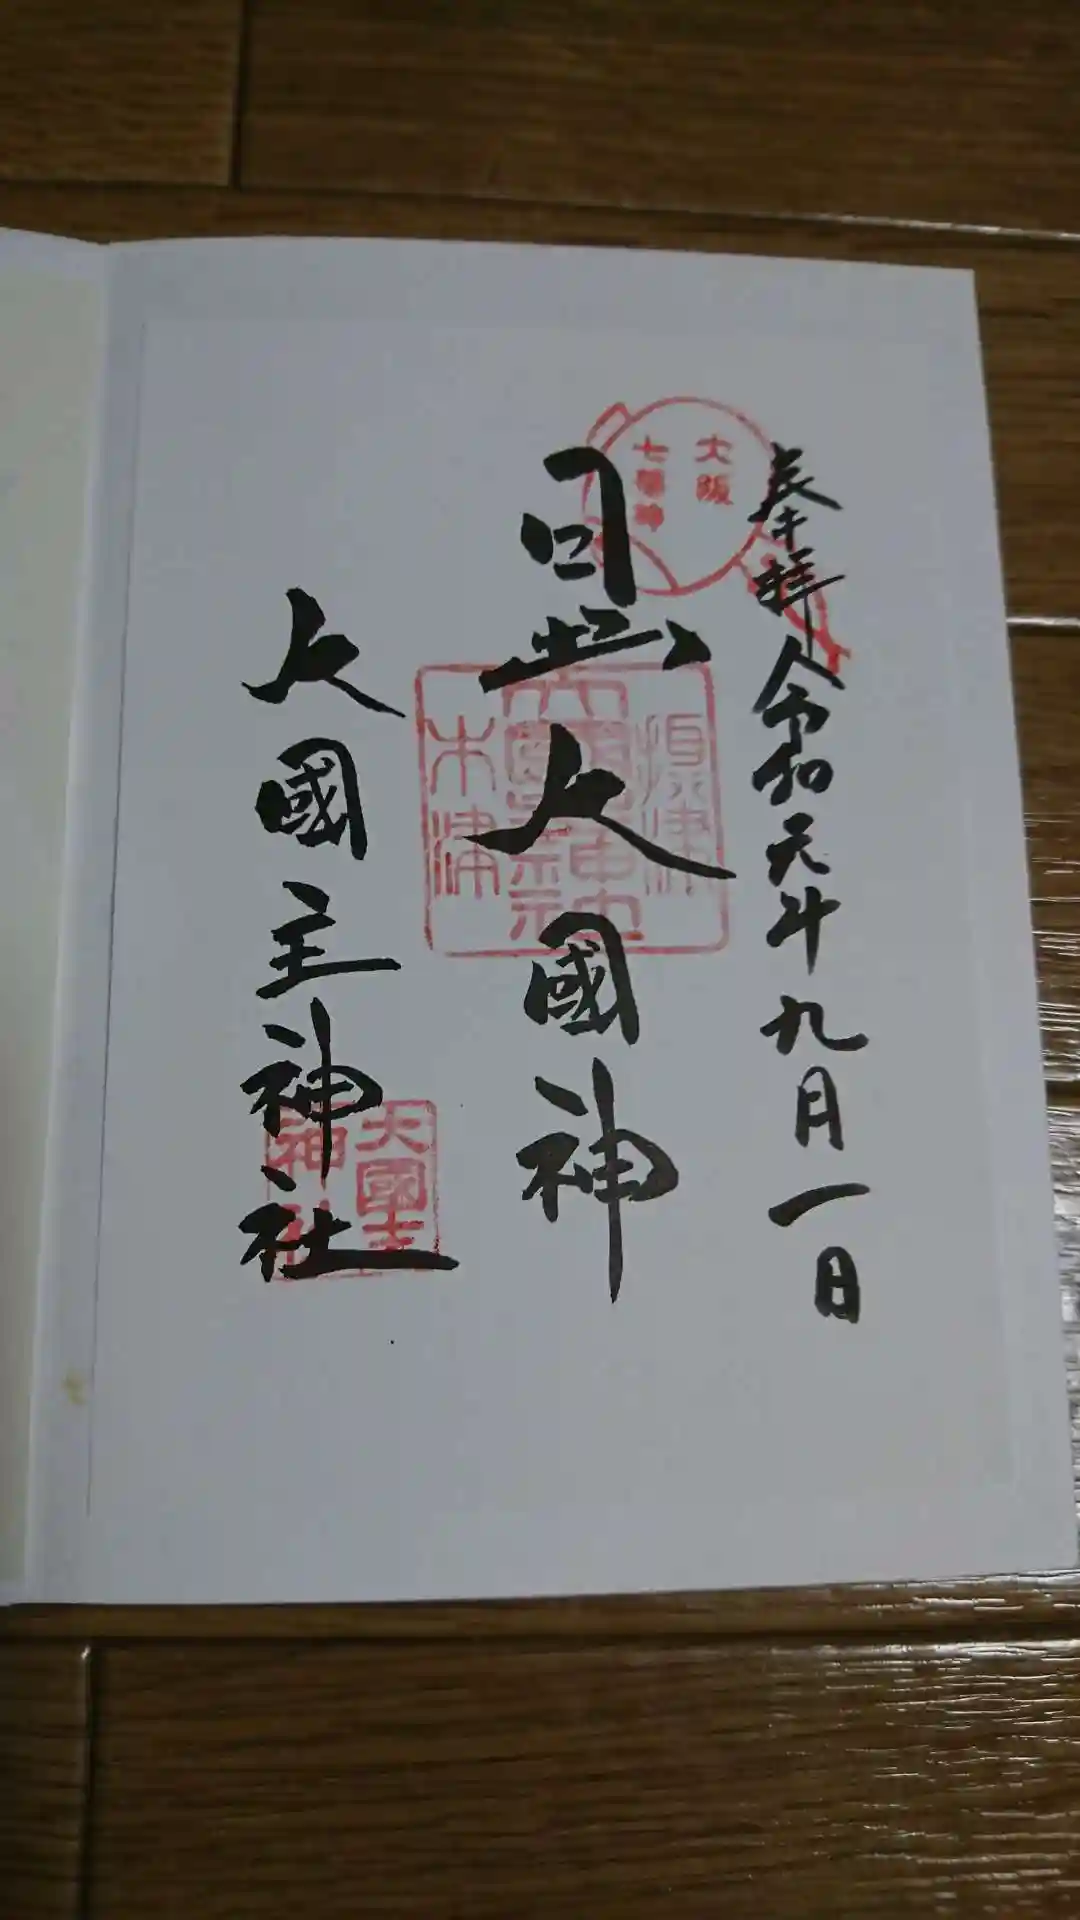 奉拝 令和元年九月一日
大阪
七福神
黒大國神
摂津
大國神社
木津
大國主神社
大國主
神社